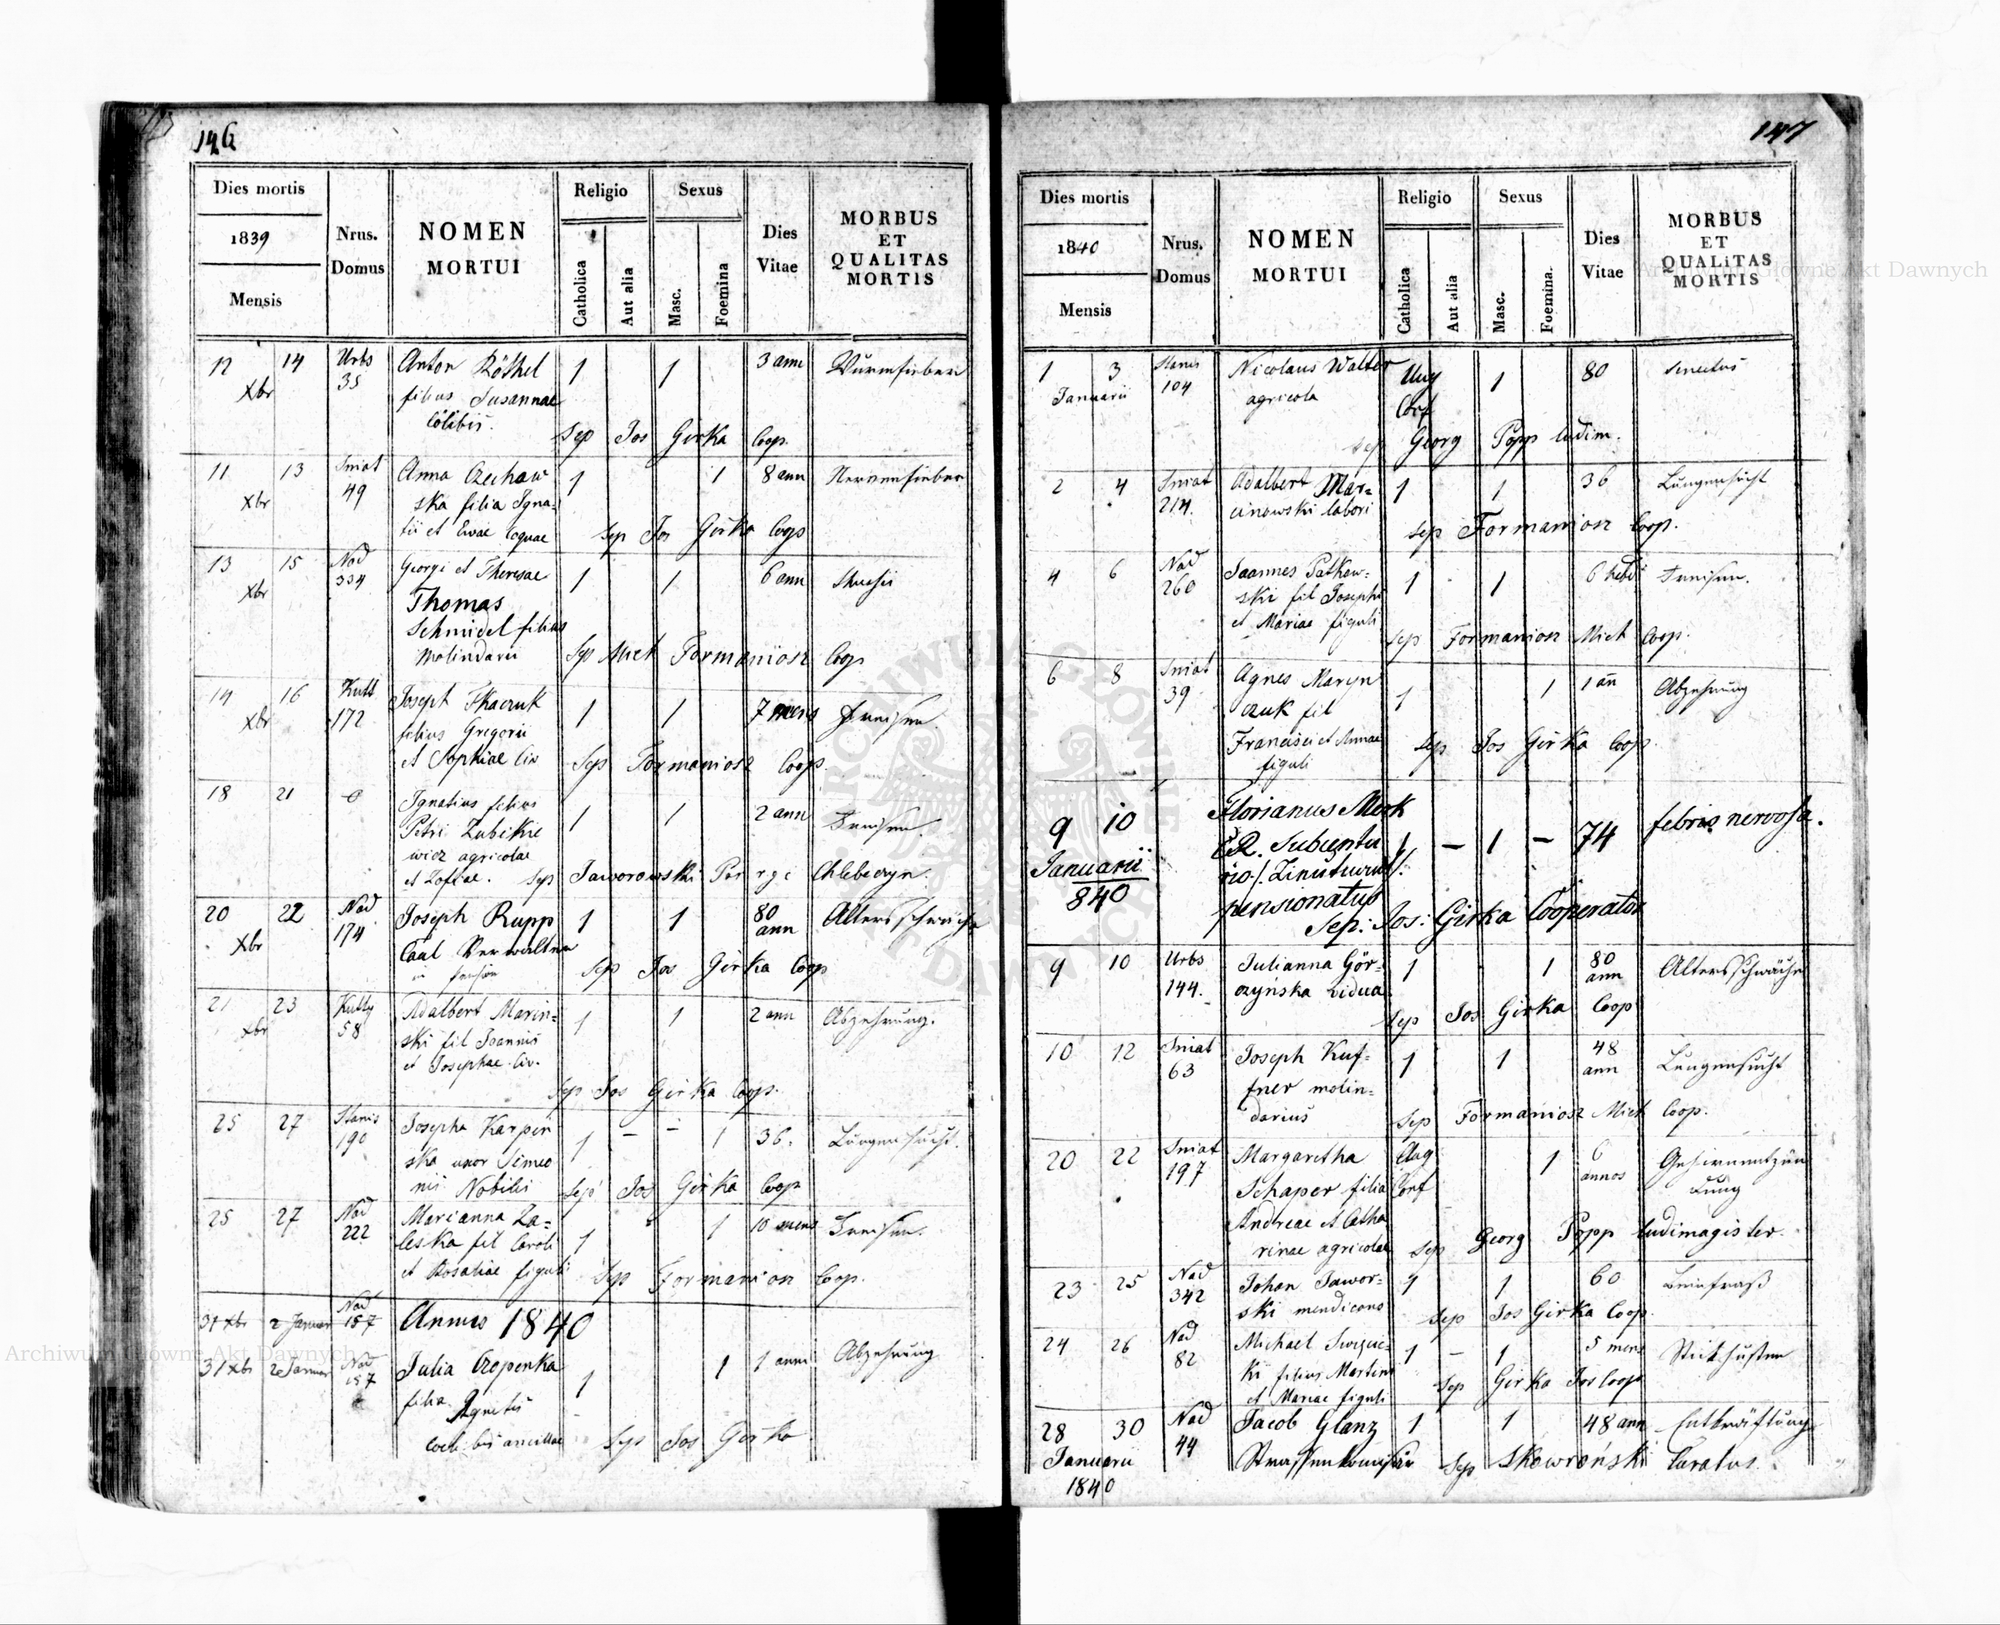 146
Dies mortis
1839
Mensis
Nrus.
Domus
NOMEN
MORTUI
Religio
Catholica
Aut alia
Sexus
Masc.
Foemina
Dies
Vitae
MORBUS
ET
QUALITAS
MORTIS
12 14 Urbs Anton Röthel 1 1 3 ann Wurmfieber
Xbr 35 filius Susannae
Cölibis.
Sep Jos Girka Coop.
11 13 Sniat Anna Czechaw 1 1 8 ann Nervenfieber
Xbr 49 ska filia Igna-
tii et Evae
Sep Jos Girka Coop
13 15 Nad Georgi et Theresae 1 1 6 ann
Xbr 334 Thomas
Schmidel filius
Molindarii
Sep Mich Formaniosz Coop
14 16 Kutt Joseph Tkaczuk 1 1 7 mens Fraisen
Xbr 172 filius Gregorii
et Sophiae Civ
Sep Formaniosz Coop.
18 21 Ignatius filius 1 1 2 ann Fraisen.
Petri Zubikie
wicz agricolae
et Zofiae. Sep Jaworowski Chlebeczyn.
20 22 Nad Joseph Rupp 1 1 80 ann Altersschwäche
Xbr 174 Caal Verwalter
in
Sep Jos Girka Coop
21 23 Kutty Adalbert Marin- 1 1 2 ann Abzehrung.
Xbr 58 ski fil Joannis
et Josephae Civ.
Sep Jos Girka Coop.
25 27 Stanis Josepha Karpin 1 – – 1 36. Lungensucht.
190 ska uxor Simeo
nis Nobilis
Sep Jos Girka Coop
25 27 Nad Marianna Za- 1 1 10 mens Fraisen.
222 leska fil Caroli
et Rosaliae figuli
Sep Formanion Coop.
31 Xbr 2 Januar Nad 157 Annus 1840
31 Xbr 2 Januar Nad 157 Julia Czopenka 1 1 1 anni Abzehrung
filia Agnetis
ancillae
Sep Jos Girka
147
Dies mortis
1840
Mensis
Nrus.
Domus
NOMEN
MORTUI
Religio
Catholica
Aut alia
Sexus
Masc.
Foemina.
Dies
Vitae
MORBUS
ET
QUALITAS
MORTIS
1 3 Stanis Nicolaus Walter Aug 1 80 Senectus
Januarii 104 agricola Conf
Sep Georg Popp ludim.
2 4 Sniat Adalbert Mar- 1 1 36 Lungensucht
214. cinowski labori
Sep Formaniosz Coop.
4 6 Nad Joannes Patkow- 1 1 6 hebd Fraisen.
260 ski fil Josephi
et Mariae figuli
Sep Formaniosz Mich Coop.
6 8 Sniat Agnes Maryn 1 1 1 an Abzehrung
39 czuk fil
Francisci et Annae
figuli
Sep Jos Girka Coop.
9 10 Florianus Merk 1 – 1 – 74 febris nervosa.
Januarii
840
pensionatus
Sep: Jos: Girka Cooperator
9 10 Urbs Julianna Gór- 1 1 80 ann Altersschwäche
144. czyńska Vidua
Sep Jos Girka Coop
10 12 Sniat Joseph Kuf- 1 1 48 ann Lungensucht
63 fner molin-
darius
Sep Formaniosz Mich Coop.
20 22 Sniat Margaretha Aug 1 6 annos Gehirnentzün
197 Schaper filia Conf dung
Andreae et Catha
rinae agricolae
Sep Georg Popp ludimagister.
23 25 Nad Johan Jawor- 1 1 60 Beinfraß
342 ski mendicans
Sep Jos Girka Coop.
24 26 Nad Michael 1 – 1 5 mens Stickhusten
82 ki filius Martini
et Mariae figuli
Sep Girka Jos Coop
28 30 Nad Jacob Glanz 1 1 48 ann Entkräftung
Januarii 44 Sep Skowroński Curatus.
1840
Archiwum Główne Akt Dawnych
Archiwum Główne Akt Dawnych
ARCHIWUM GŁÓWNE AKT DAWNYCH